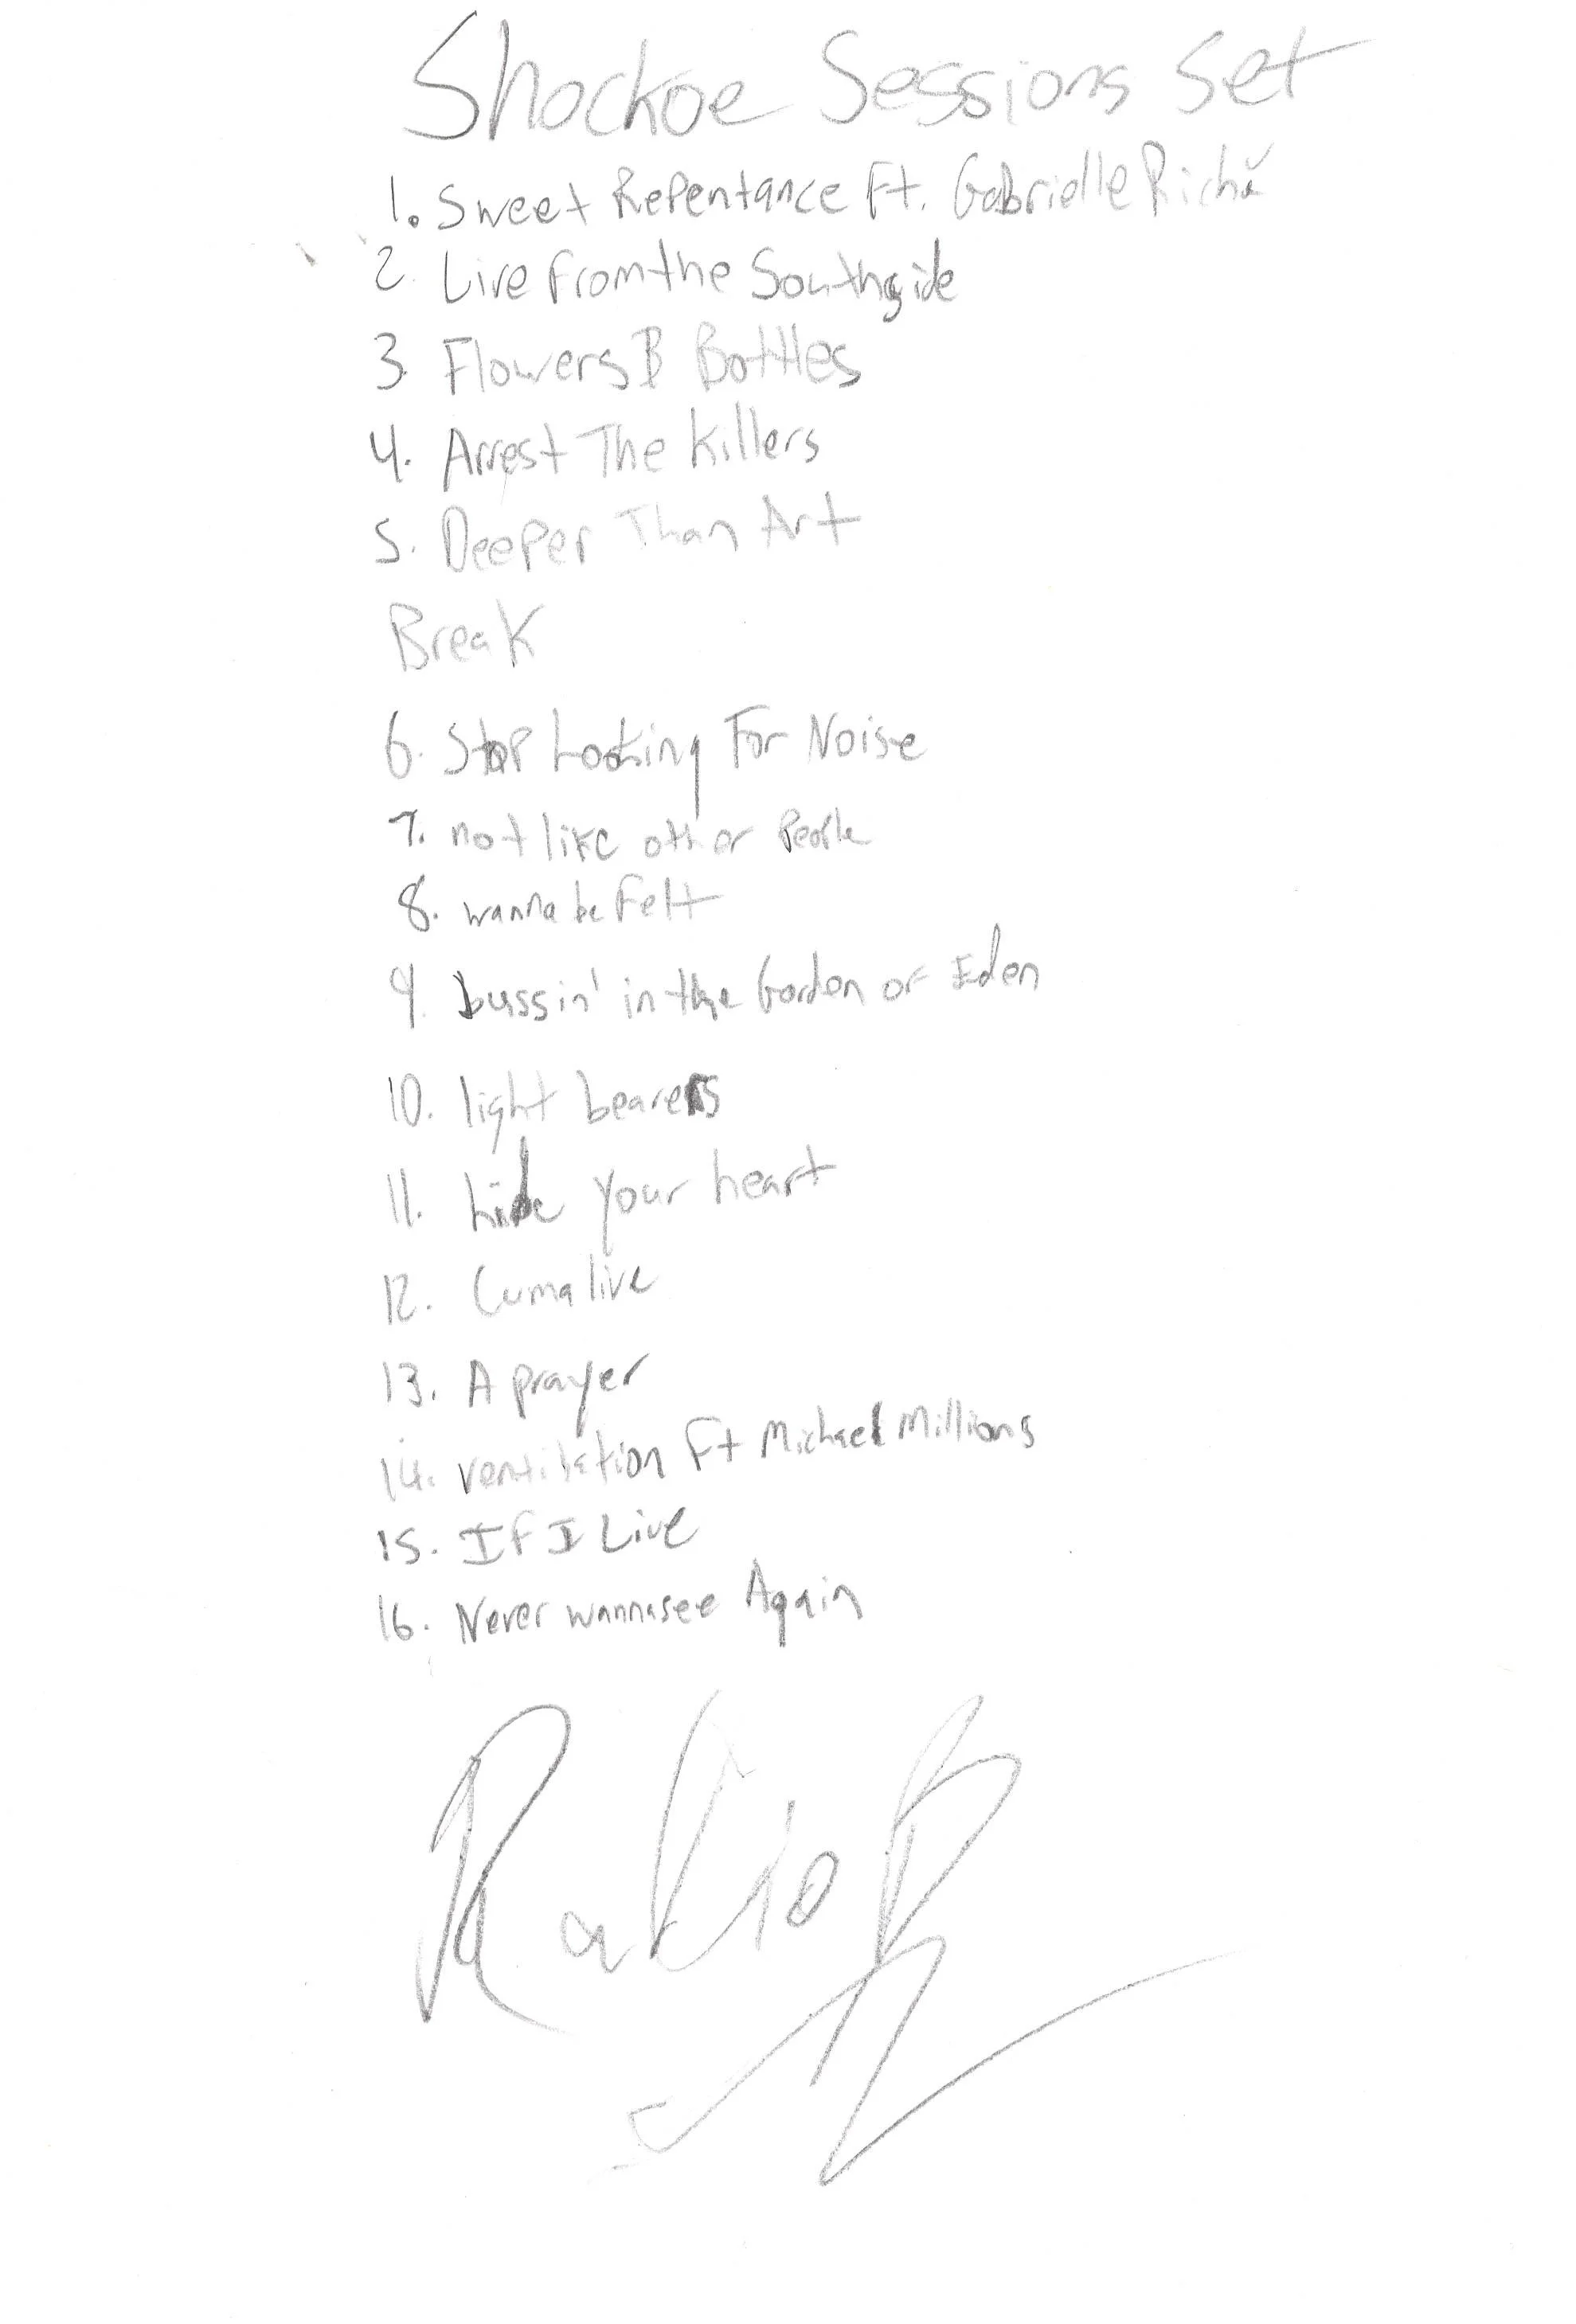 Shockoe Sessions Set
1. Sweet Repentance Ft. Gabrielle Riché
2. Live From the Southside
3. Flowers & Bottles
4. Arrest The Killers
5. Deeper Than Art
Break
6. Stop Looking For Noise
7. not like other People
8. wanna be felt
9. bussin' in the Garden of Eden
10. light bearers
11. hide your heart
12. Cumalive
13. A prayer
14. ventilation Ft Michael Millions
15. If I Live
16. Never wanna see Again